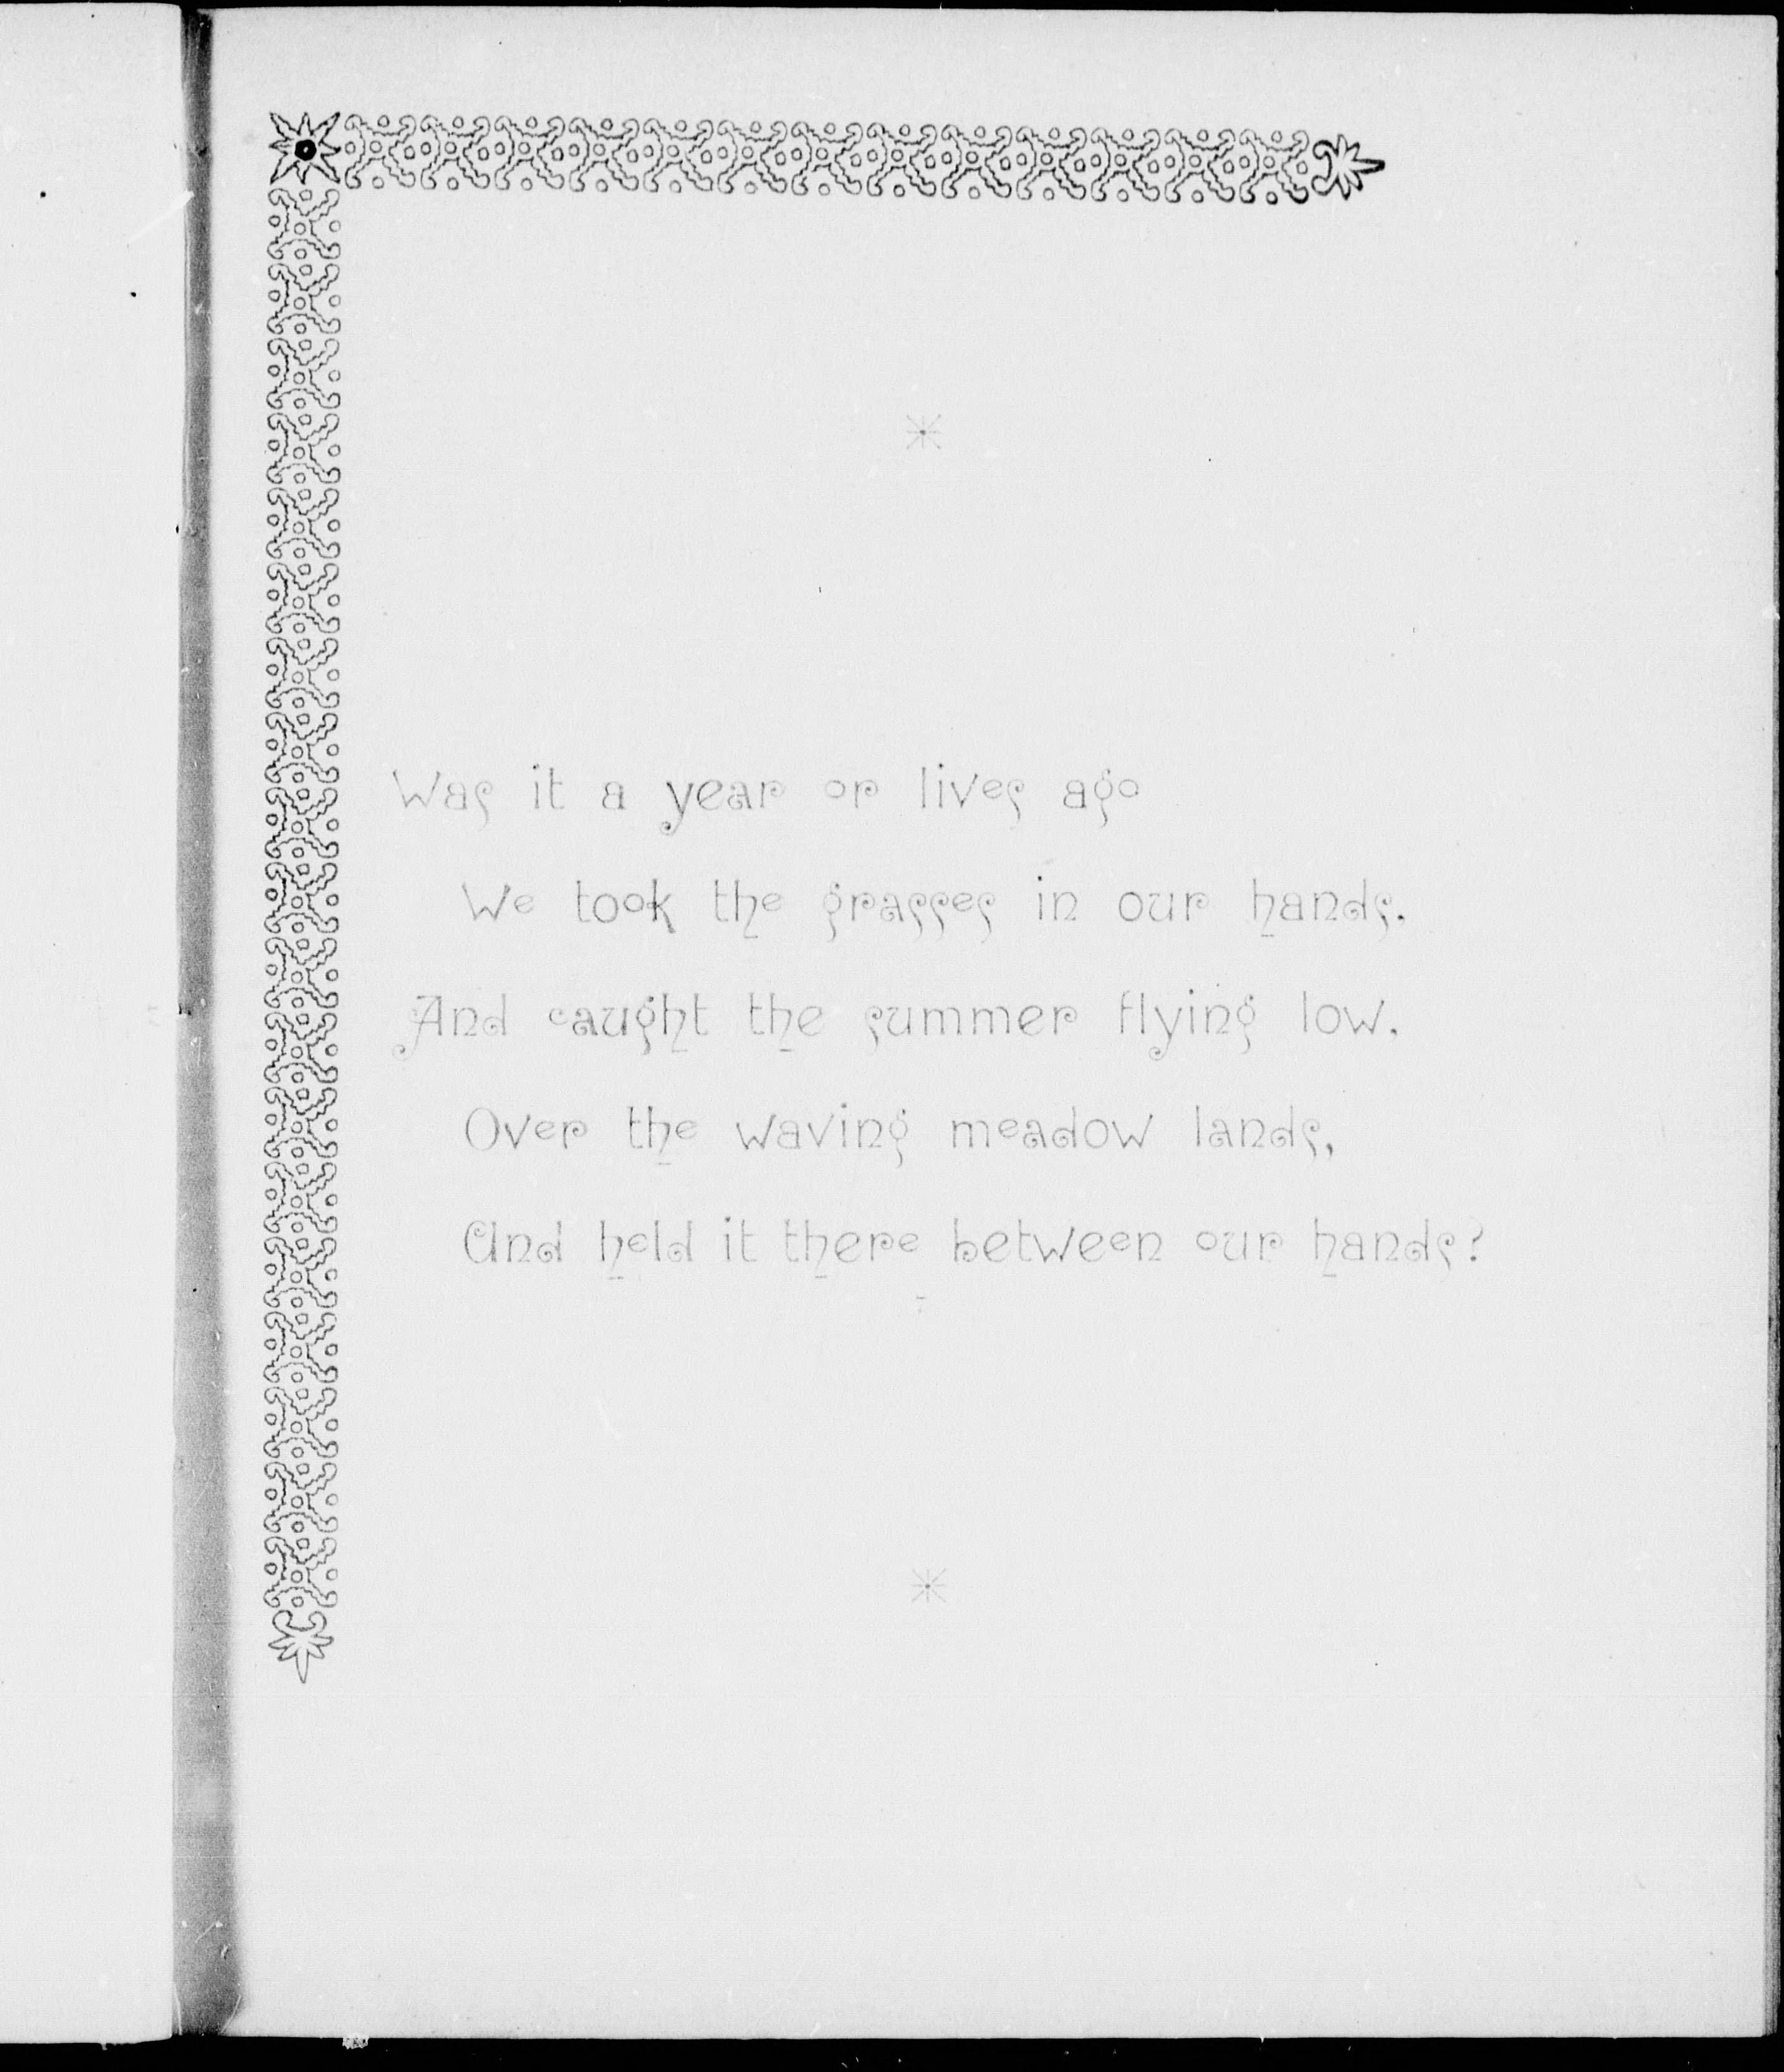 Was it a year or lives ago
We took the grasses in our hands,
And caught the summer flying low,
Over the waving meadow lands,
And held it there between our hands?